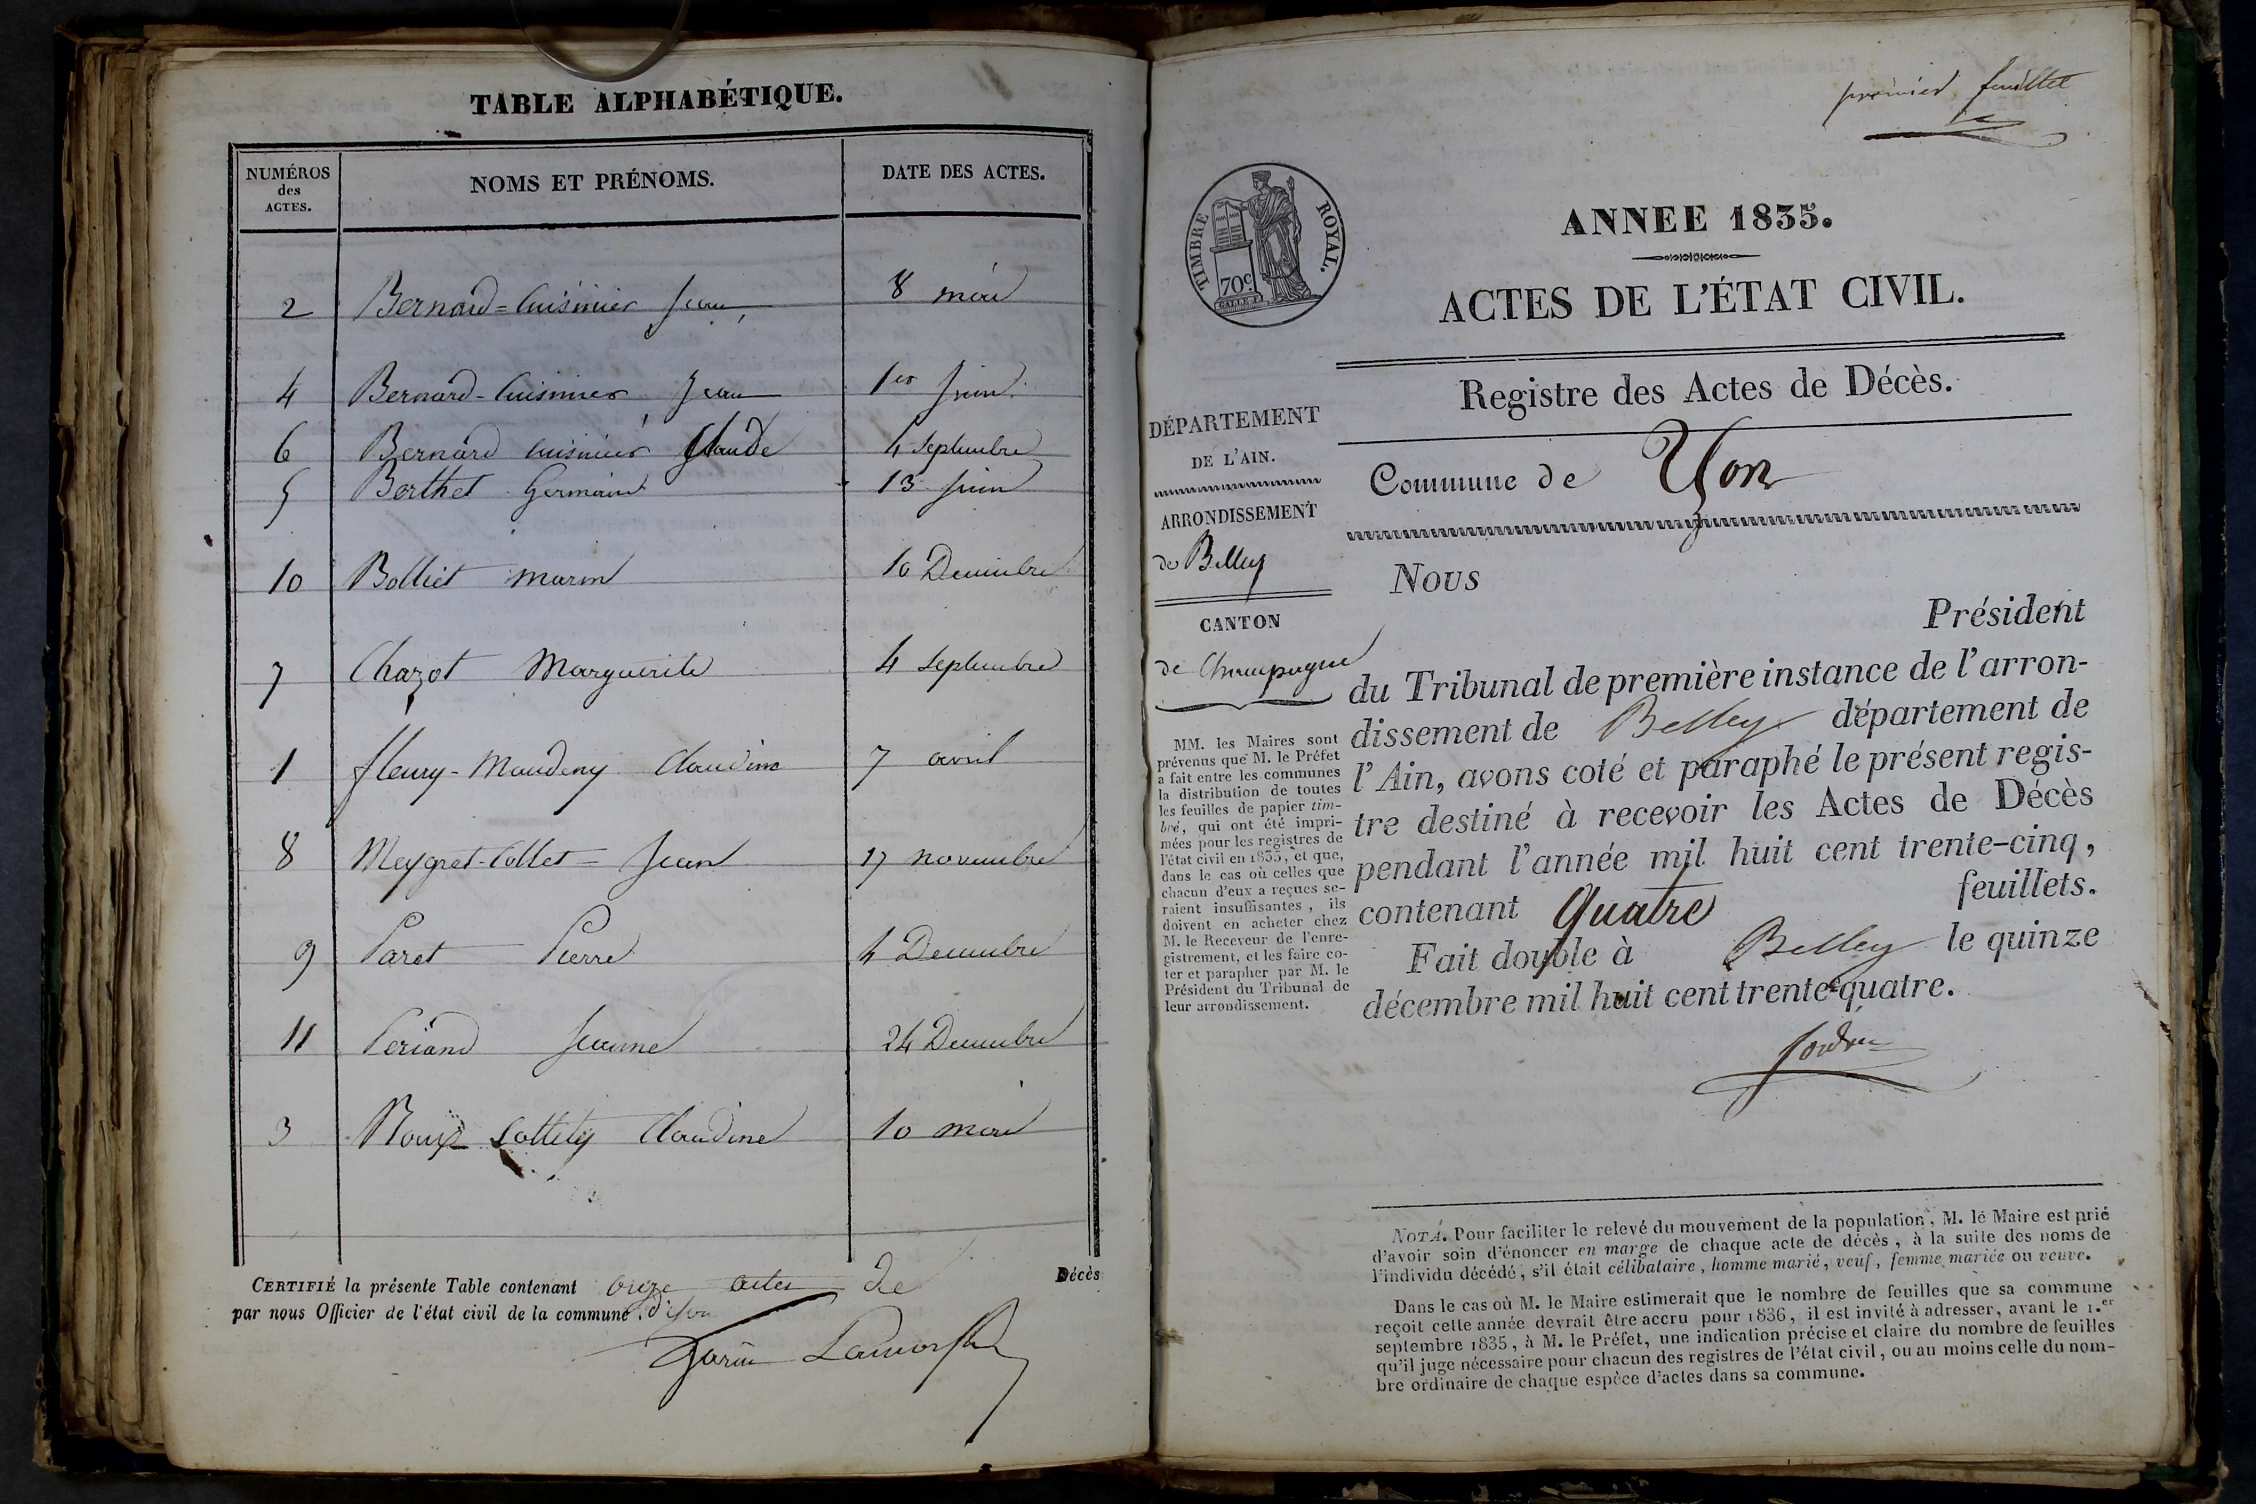 TABLE ALPHABÉTIQUE.
NUMÉROS des ACTES. NOMS ET PRÉNOMS. DATE DES ACTES.
2 Bernard=Cuisinier Jean 8 mai
4 Bernard-Cuisinier Jean 1er Juin
6 Bernard Cuisinier Claude 4 Septembre
5 Berthet Germain 13 Juin
10 Bolliet marin 10 Decembre
7 Chazot Marguerite 4 Septembre
1 fleury-Maudeny Claudine 7 avril
8 Meygret-Collet= Jean 17 novembre
9 Paret Pierre 4 Decembre
11 Periand Jeanne 24 Decembre
3 Roux Claudine 10 mai
CERTIFIÉ la présente Table contenant onze actes de Décès
par nous Officier de l'état civil de la commune d'yon
premier feuillet
TIMBRE ROYAL.
70c.
ANNEE 1835.
ACTES DE L'ÉTAT CIVIL.
Registre des Actes de Décès.
Commune de Yon
DÉPARTEMENT
DE L'AIN.
ARRONDISSEMENT
de Belley
CANTON
de Champagne
MM. les Maires sont
prévenus que M. le Préfet
a fait entre les communes
la distribution de toutes
les feuilles de papier tim-
bré, qui ont été impri-
mées pour les registres de
l'état civil en 1835, et que,
dans le cas où celles que
chacun d'eux a reçues se-
raient insuffisantes, ils
doivent en acheter chez
M. le Receveur de l'enre-
gistrement, et les faire co-
ter et parapher par M. le
Président du Tribunal de
leur arrondissement.
Nous
Président
du Tribunal de première instance de l'arron-
dissement de Belley département de
l'Ain, avons coté et paraphé le présent regis-
tre destiné à recevoir les Actes de Décès
pendant l'année mil huit cent trente-cinq,
contenant Quatre feuillets.
Fait double à Belley le quinze
décembre mil huit cent trente-quatre.
NOTA. Pour faciliter le relevé du mouvement de la population, M. le Maire est prié
d'avoir soin d'énoncer en marge de chaque acte de décès, à la suite des noms de
l'individu décédé, s'il était célibataire, homme marié, veuf, femme mariée ou veuve.
Dans le cas où M. le Maire estimerait que le nombre de feuilles que sa commune
reçoit cette année devrait être accru pour 1836, il est invité à adresser, avant le 1.er
septembre 1835, à M. le Préfet, une indication précise et claire du nombre de feuilles
qu'il juge nécessaire pour chacun des registres de l'état civil, ou au moins celle du nom-
bre ordinaire de chaque espèce d'actes dans sa commune.